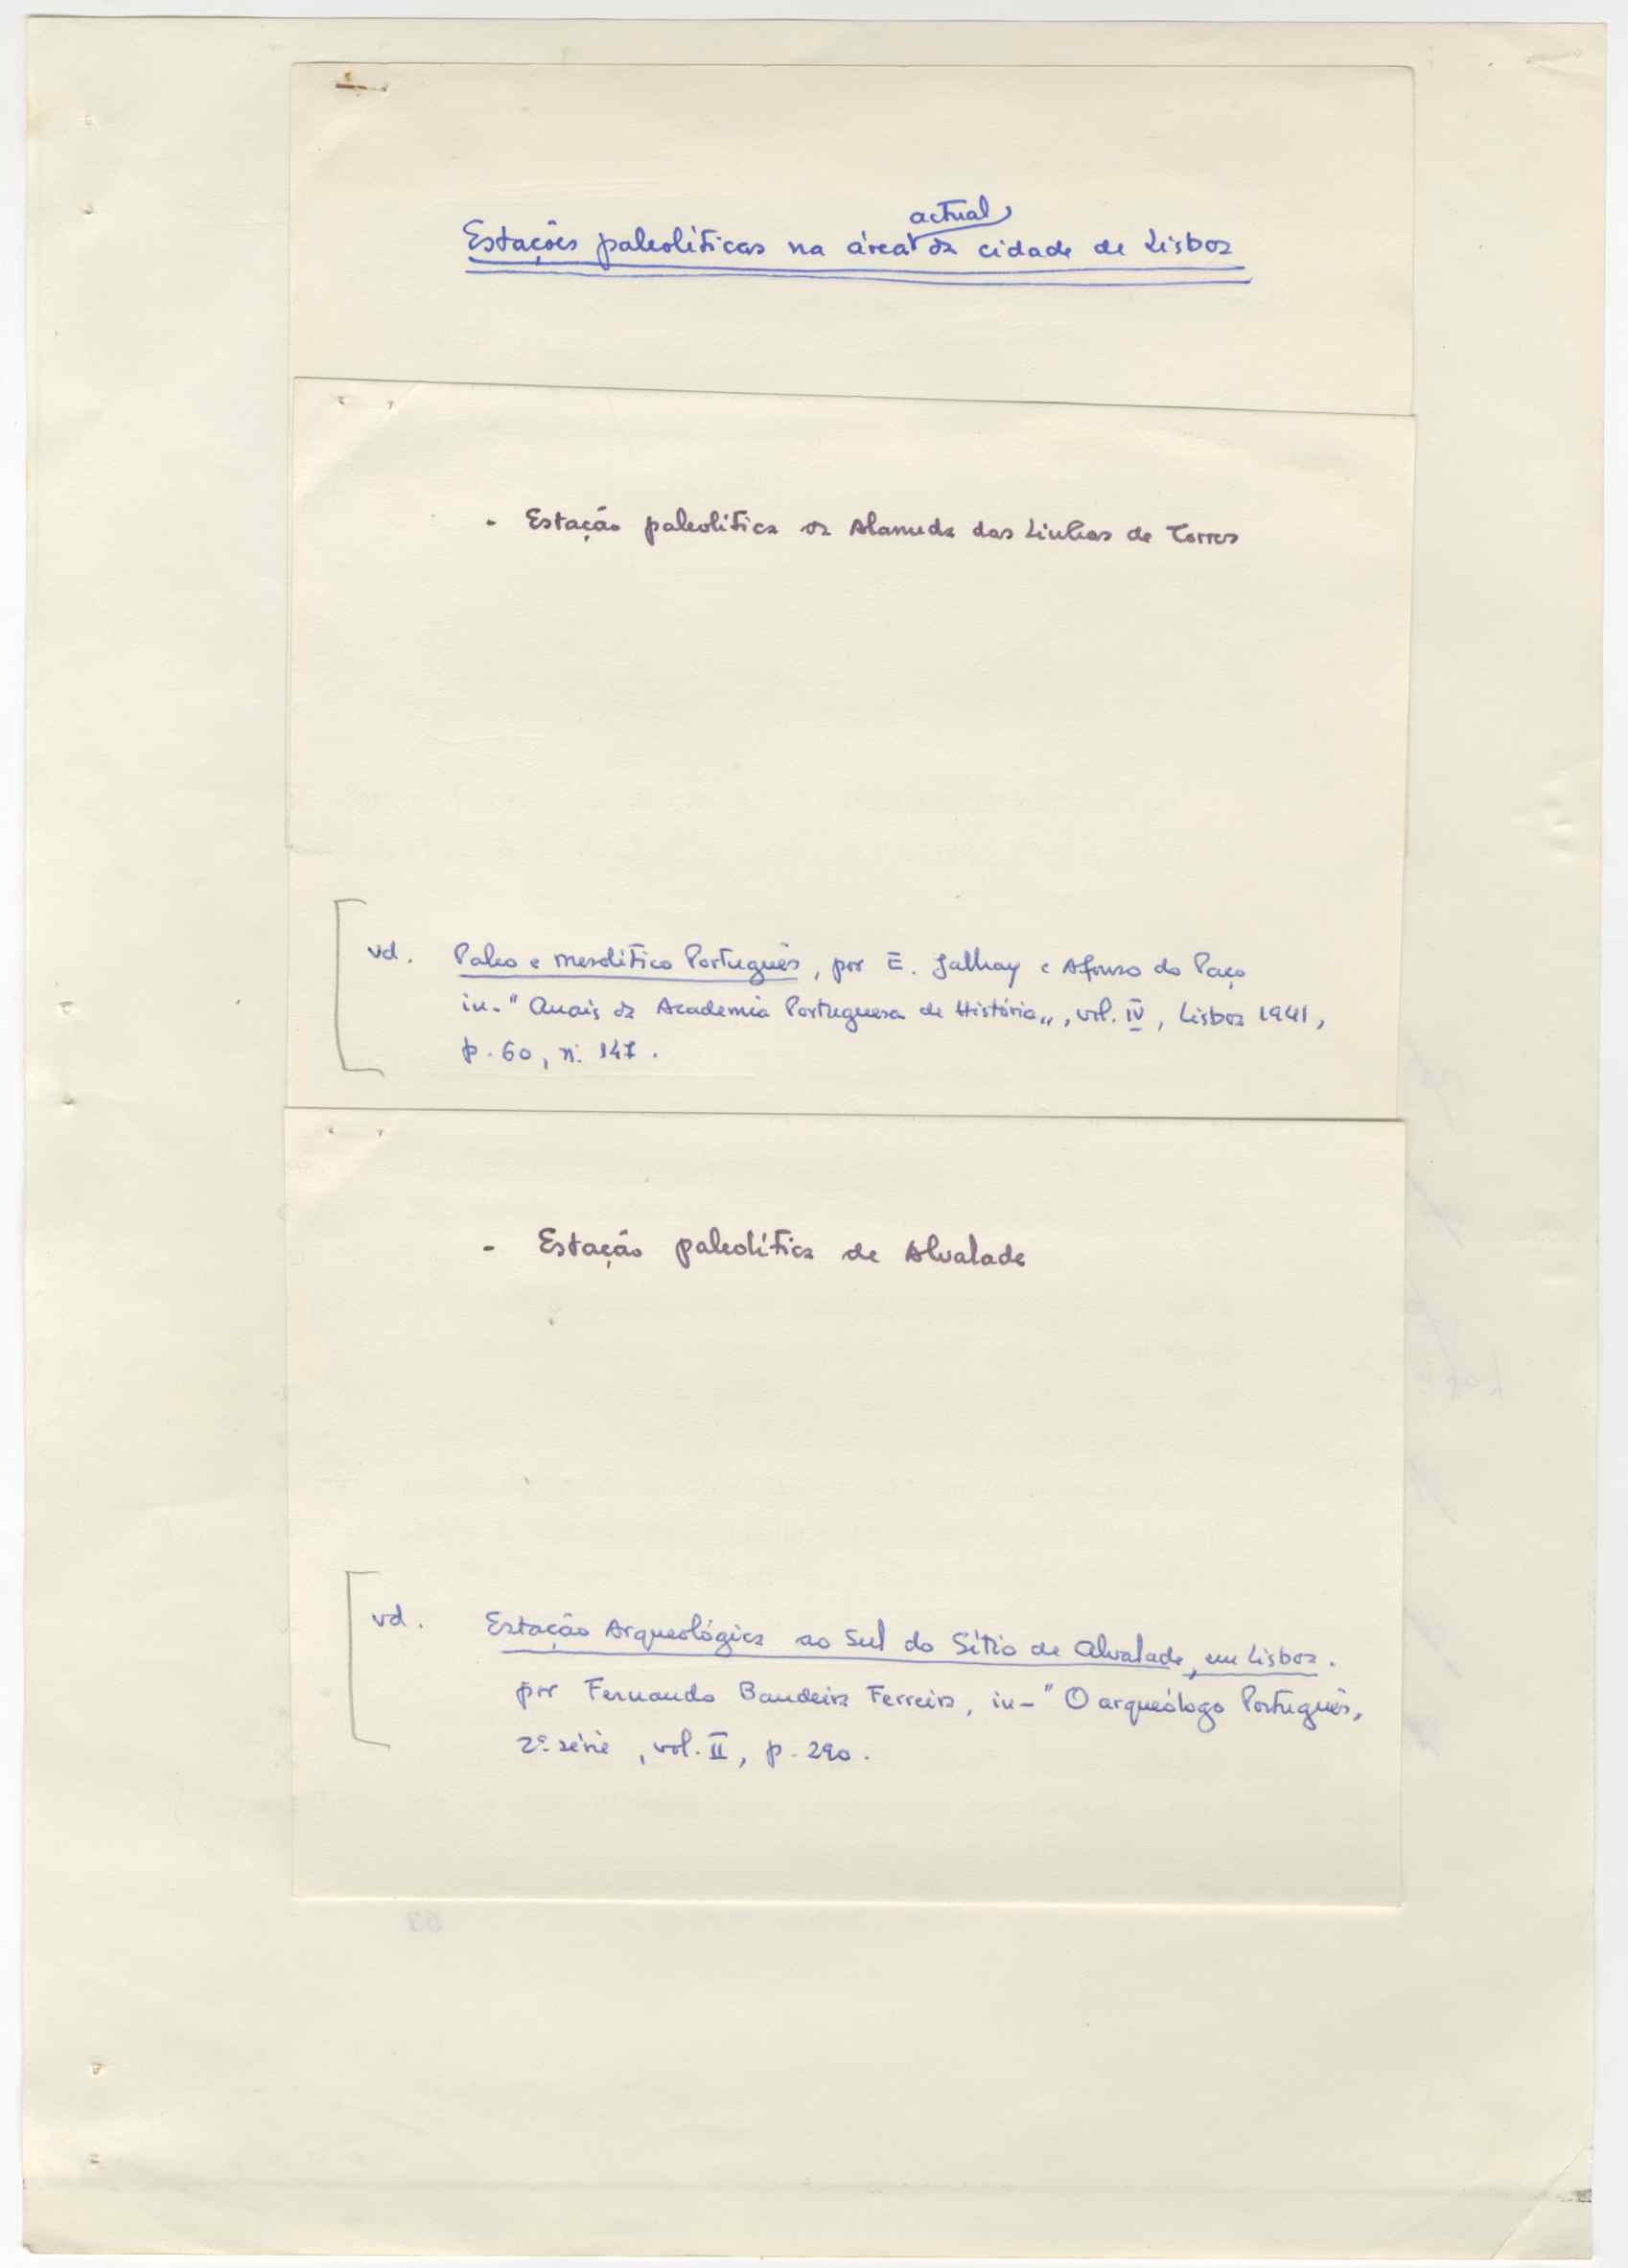 Estações paleolíticas na área actual da cidade de Lisboa
- Estação paleolítica da Alameda das Linhas de Torres
vd. Paleo e mesolítico Português, por E. Jalhay e Afonso do Paço
in-"Anais da Academia Portuguesa de História", vol. IV, Lisboa 1941,
p. 60, n.º 147.
- Estação paleolítica de Alvalade
vd. Estação Arqueológica ao Sul do Sítio de Alvalade, em Lisboa.
por Fernando Bandeira Ferreira, in-"O arqueólogo Português,
2ª série, vol. II, p. 290.